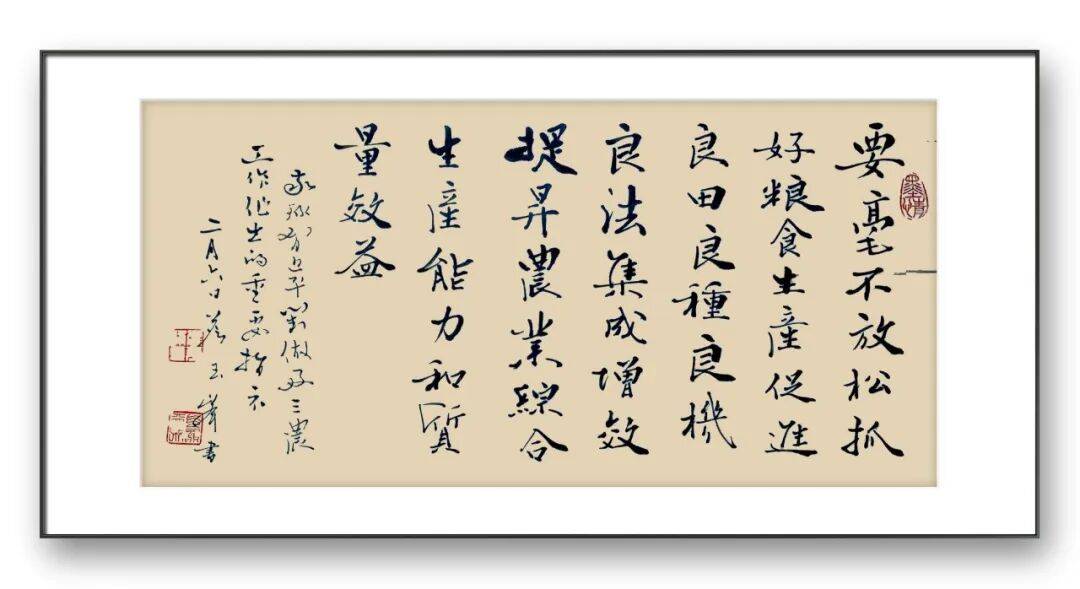 要毫不放松抓
好粮食生產促進
良田良種良機
良法集成增效
提昇農業綜合
生產能力和質
量效益
敬録習近平對做好三農
工作作出的重要指示
二月六日玉峯書